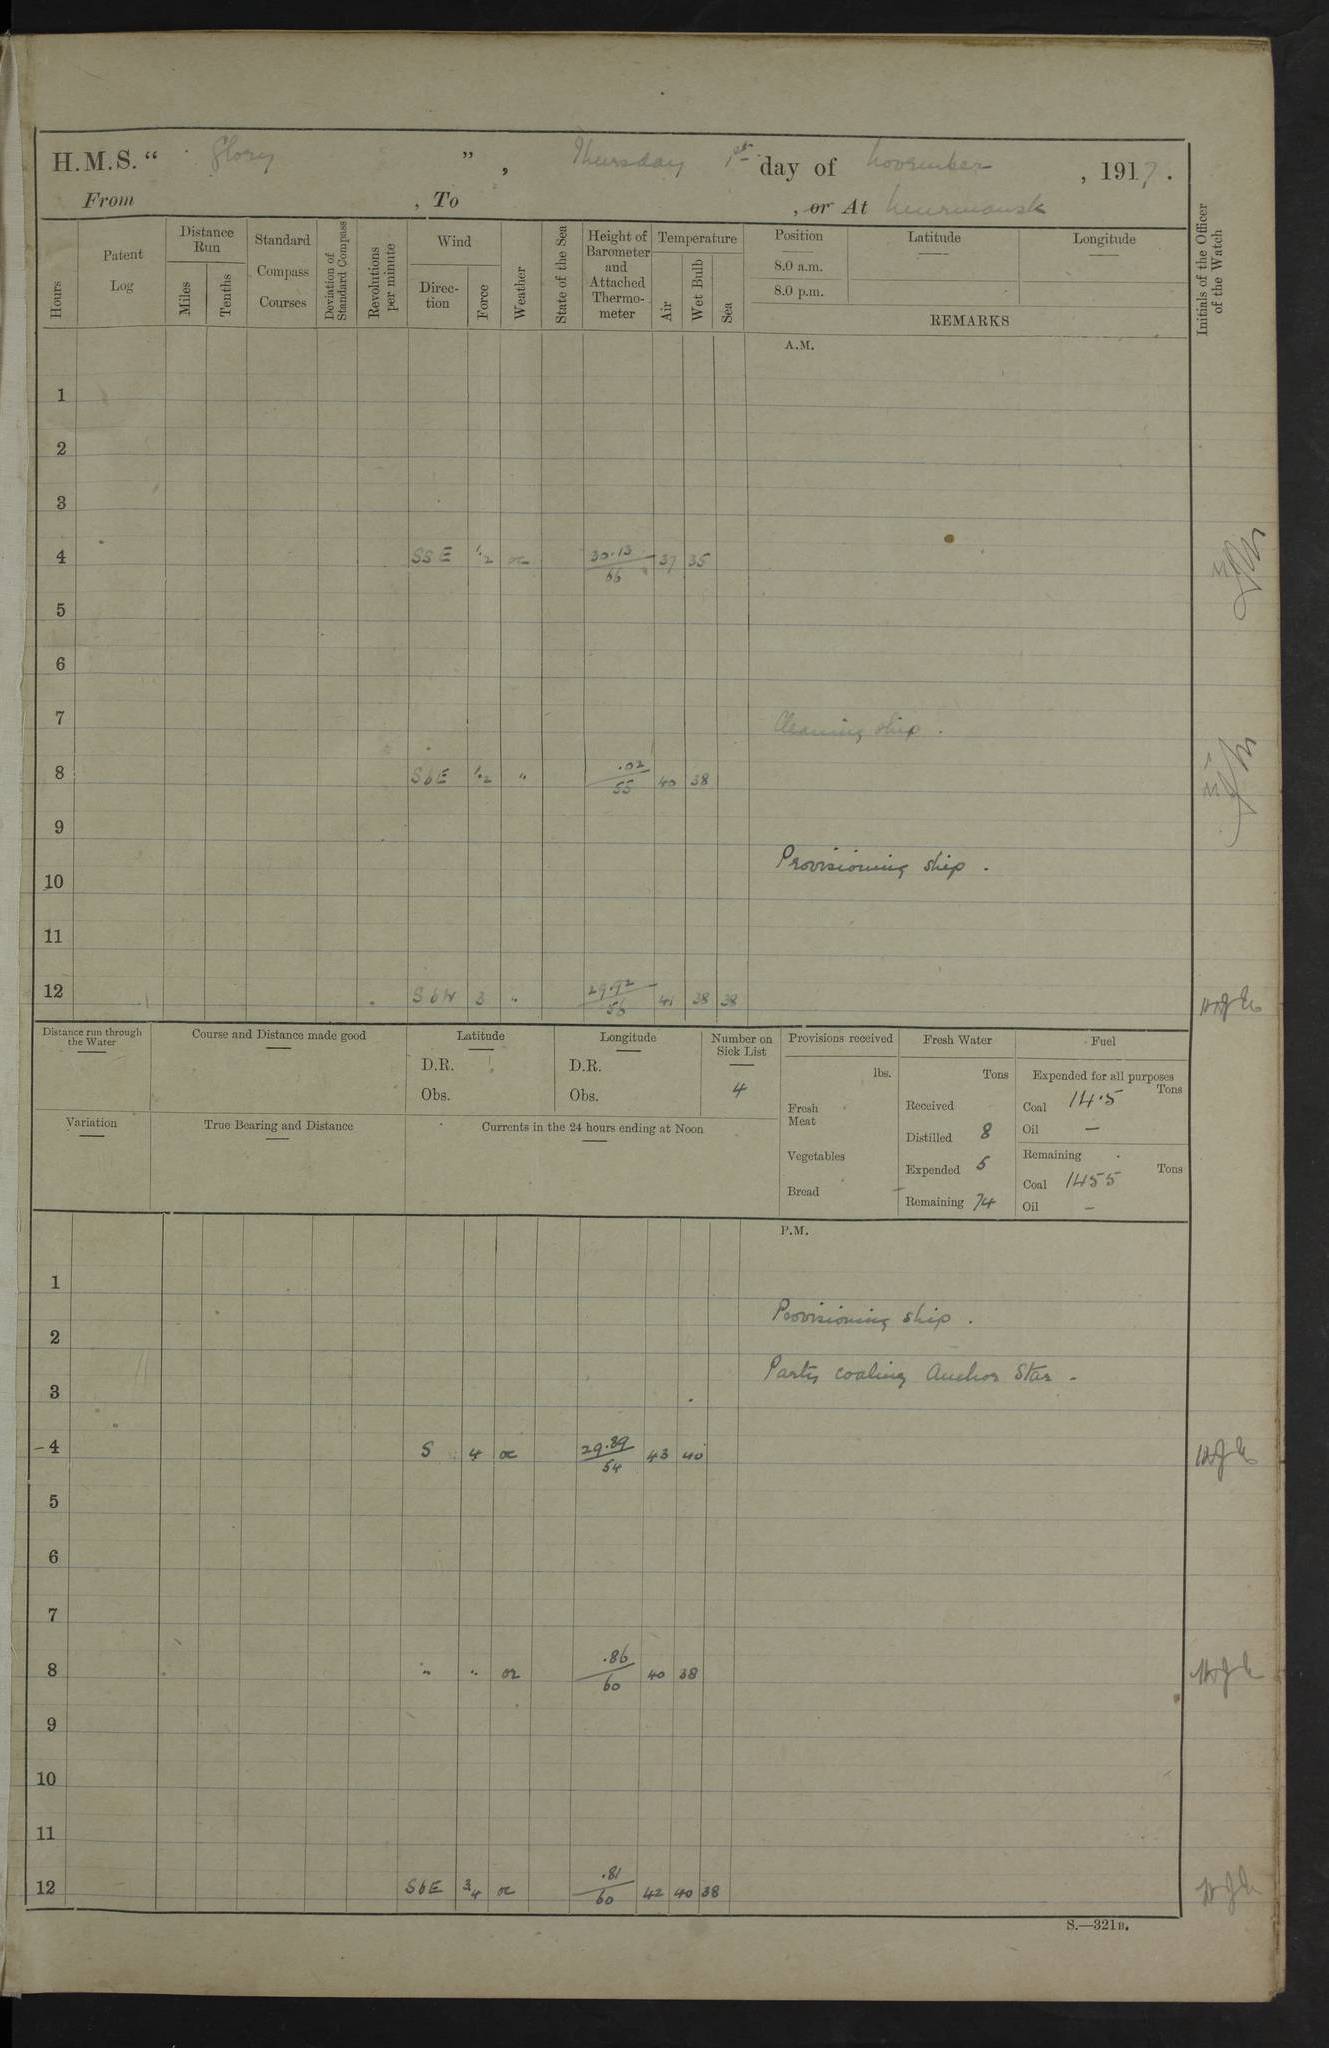 H.M.S. “ Glory ” , Thursday 1st day of November , 1917 .
From , To , or At Murmansk
Hours
Patent Log
Distance Run
Miles
Tenths
Standard Compass Courses
Deviation of Standard Compass
Revolutions per minute
Wind
Direction
Force
Weather
State of the Sea
Height of Barometer and Attached Thermometer
Temperature
Air
Wet Bulb
Sea
Position Latitude Longitude
8.0 a.m.
8.0 p.m.
REMARKS
Initials of the Officer of the Watch
A.M.
1
2
3
4 SSE 1.2 oc 30.13/66 37 35
5
6
7 Cleaning ship .
8 SbE 1.2 " .02/55 40 38
9
Provisioning ship .
10
11
12 SbW 3 " 29.92/56 41 38 38
Distance run through the Water
Course and Distance made good
Latitude
D.R.
Obs.
Longitude
D.R.
Obs.
Number on Sick List
4
Variation
True Bearing and Distance
Currents in the 24 hours ending at Noon
Provisions received
lbs.
Fresh Meat
Vegetables
Bread
Fresh Water
Tons
Received
Distilled 8
Expended 5
Remaining 74
Fuel
Expended for all purposes
Tons
Coal 14.5
Oil —
Remaining
Tons
Coal 1455
Oil —
P.M.
1
Provisioning ship .
2
Party coaling Anchor Star .
3
4 S 4 oc 29.89/54 43 40
5
6
7
8 " " or .86/60 40 38
9
10
11
12 SbE 3/4 oc .81/60 42 40 38
S.—321B.